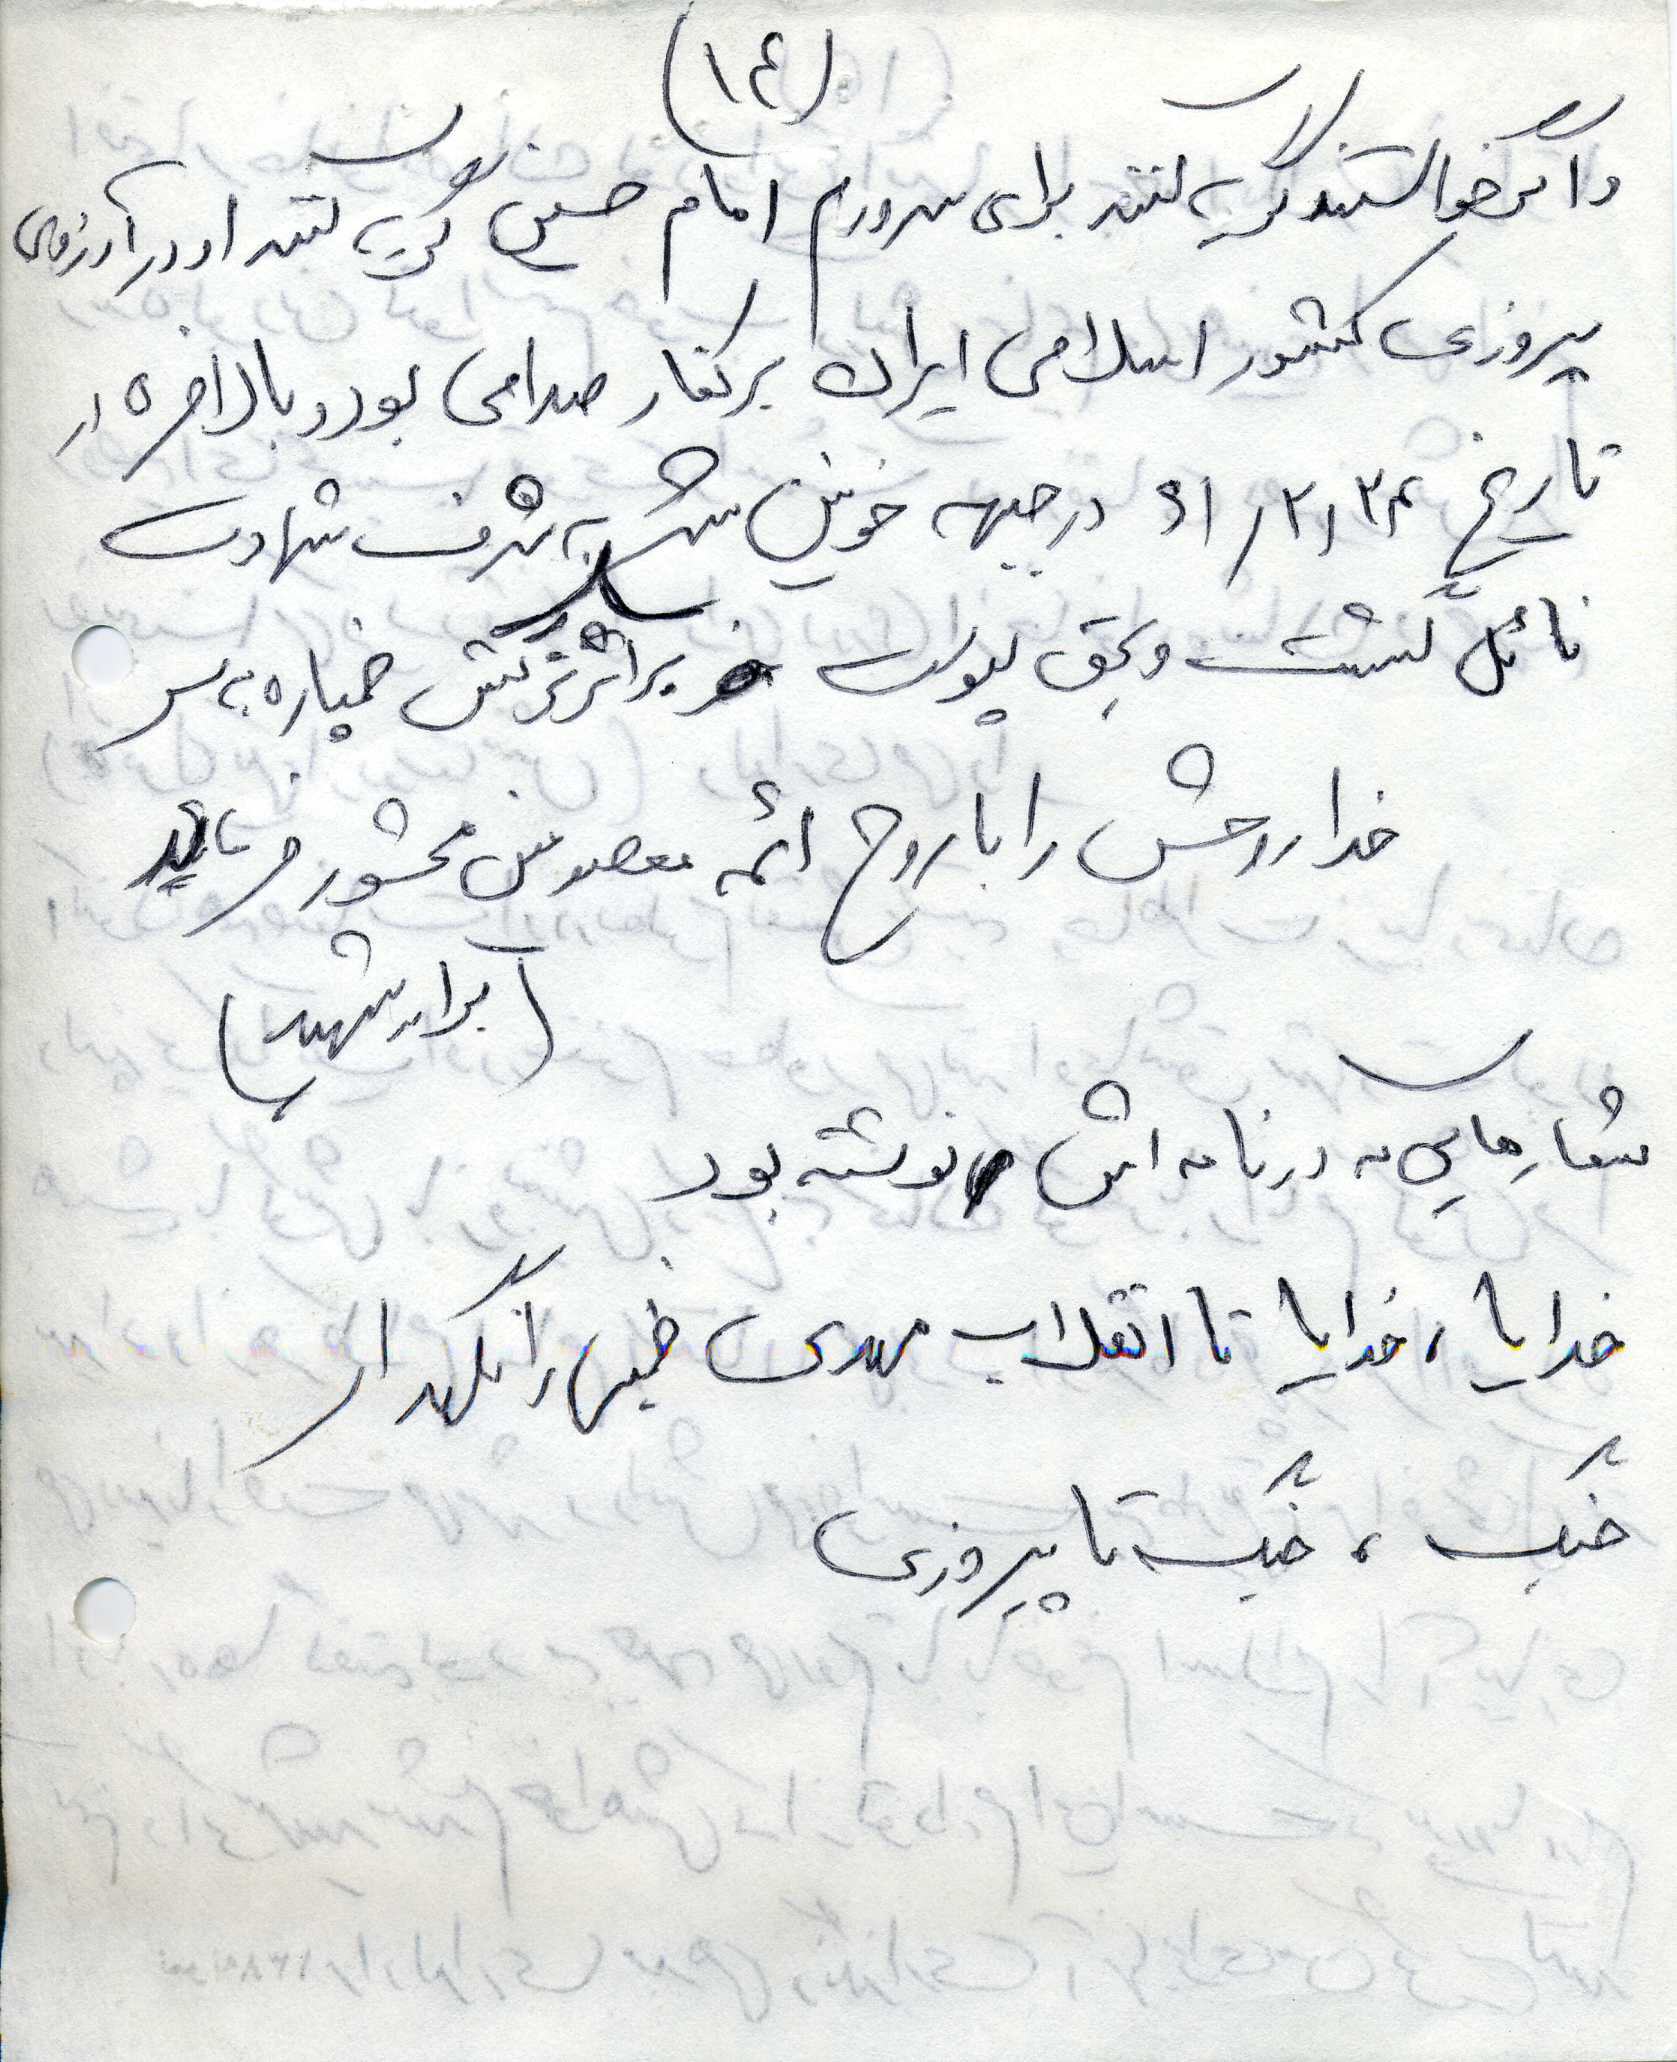 (۱۴)
و اگر خواستند گریه کنند برای سرورم امام حسین گریه کنند او در آرزوی
پیروزی کشور اسلامی ایران بر کفار صدامی بود و بالاخره در
تاریخ ۶۱/۲/۲۴ در جبهه خونین شهر به شرف شهادت
نائل گشت و بحق پیوست بر اثر ترکش خمپاره به سر
خدا روحش را با روح ائمه معصومین محشور فرماید
(برادر شهید)
شعارهایی که در نامه اش نوشته بود
خدایا، خدایا تا انقلاب مهدی خمینی را نگهدار
جنگ، جنگ تا پیروزی